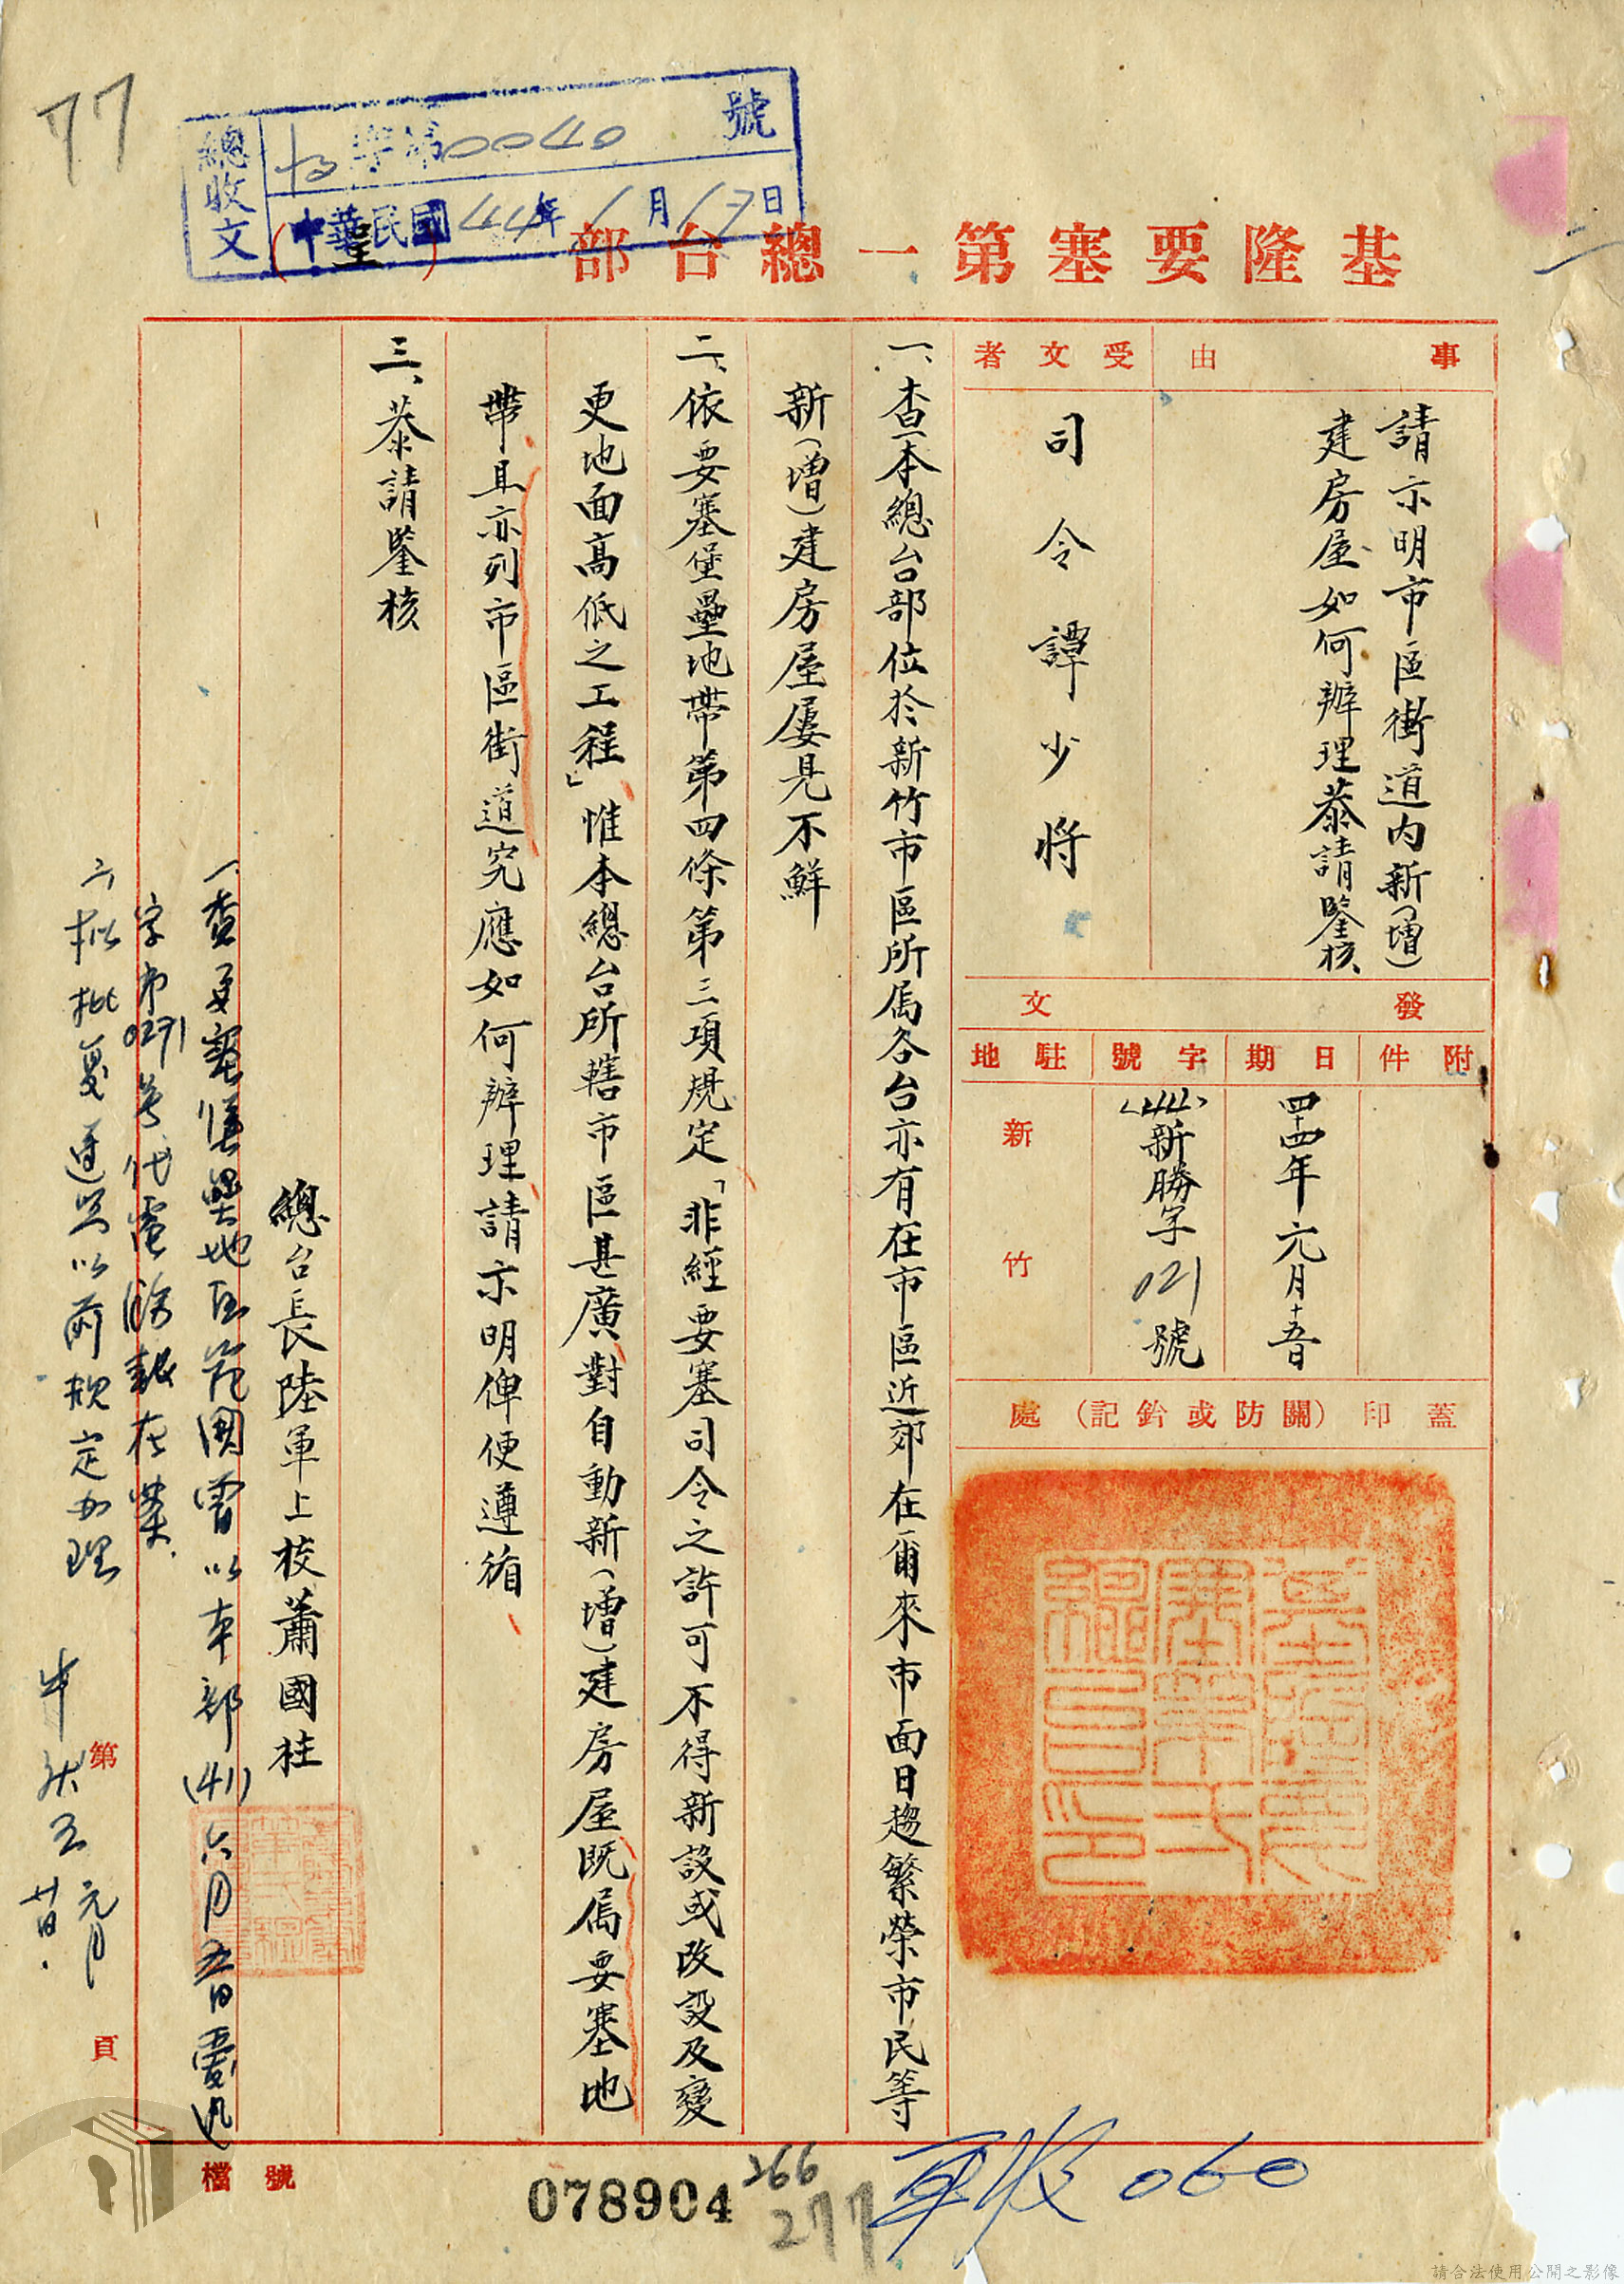 77
總收文
字第0040號
中華民國44年1月17日
基隆要塞第一總台部(呈)
事由
請示明市區街道內新(增)
建房屋如何辦理恭請鑒核
受文者
司令譚少將
發文
附件
日期
四十四年元月十五日
字號
(44)新勝字021號
駐地
新竹
蓋印(關防或鈐記)處
一、查本總台部位於新竹市區所屬各台亦有在市區近郊在爾來市面日趨繁榮市民等
新(增)建房屋屢見不鮮
二、依要塞堡壘地帶第四條第三項規定「非經要塞司令之許可不得新設或改設及變
更地面高低之工程」惟本總台所轄市區甚廣對自動新(增)建房屋既屬要塞地
帶且亦列市區街道究應如何辦理請示明俾便遵循
三、恭請鑒核
總台長陸軍上校蕭國柱
一、查要塞堡壘地區範圍曾以本部(41)六月五日
字第0271號代電 在案
二、擬批復遵照以前規定辦理
元月廿日
第頁
檔號
078904
266
277
060
請合法使用公開之影像